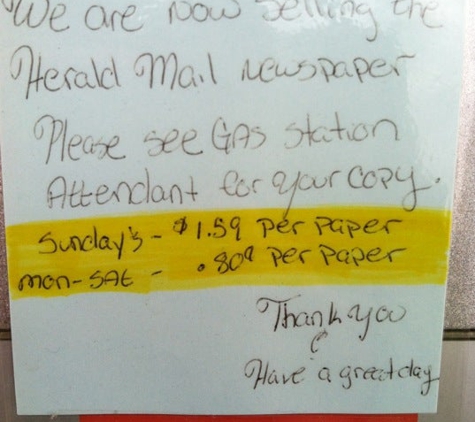 We are now selling the
Herald Mail newspaper
Please see GAS station
Attendant for your copy.
Sunday's - $1.59 per paper
mon-SAt - .80¢ per paper
Thank you
Have a great day